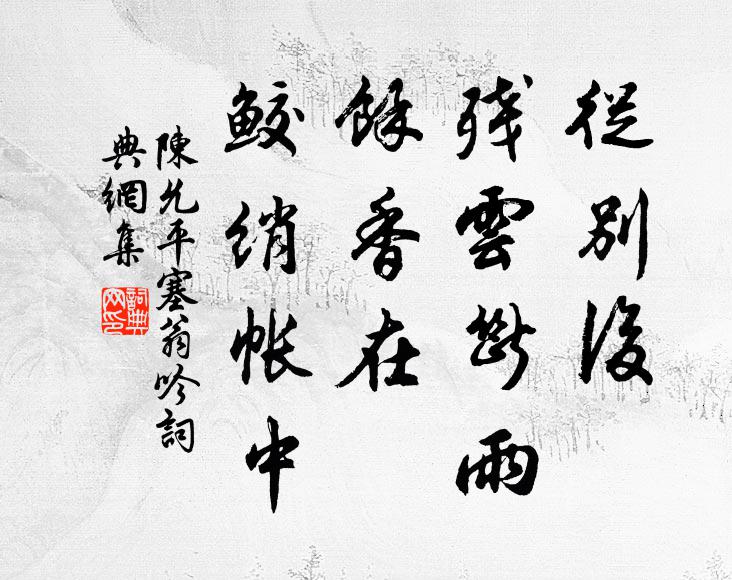 從別後
殘雲斷雨
餘香在
鮫綃帳中
陳允平塞翁吟詞
典網集
詞典
网印